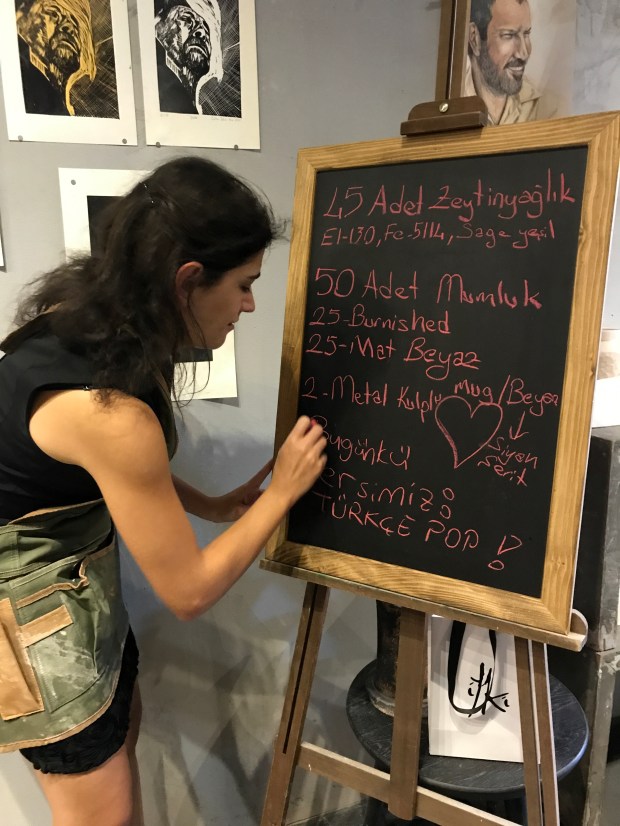 45 Adet Zeytinyağlık
E1-130, Fe-5114, Sage yeşil
50 Adet Mumluk
25-Burnished
25-Mat Beyaz
2-Metal Kulplu Mug/Beyaz
Siyah
Şerit
Bugünkü
Dersimiz:
TÜRKÇE POP !